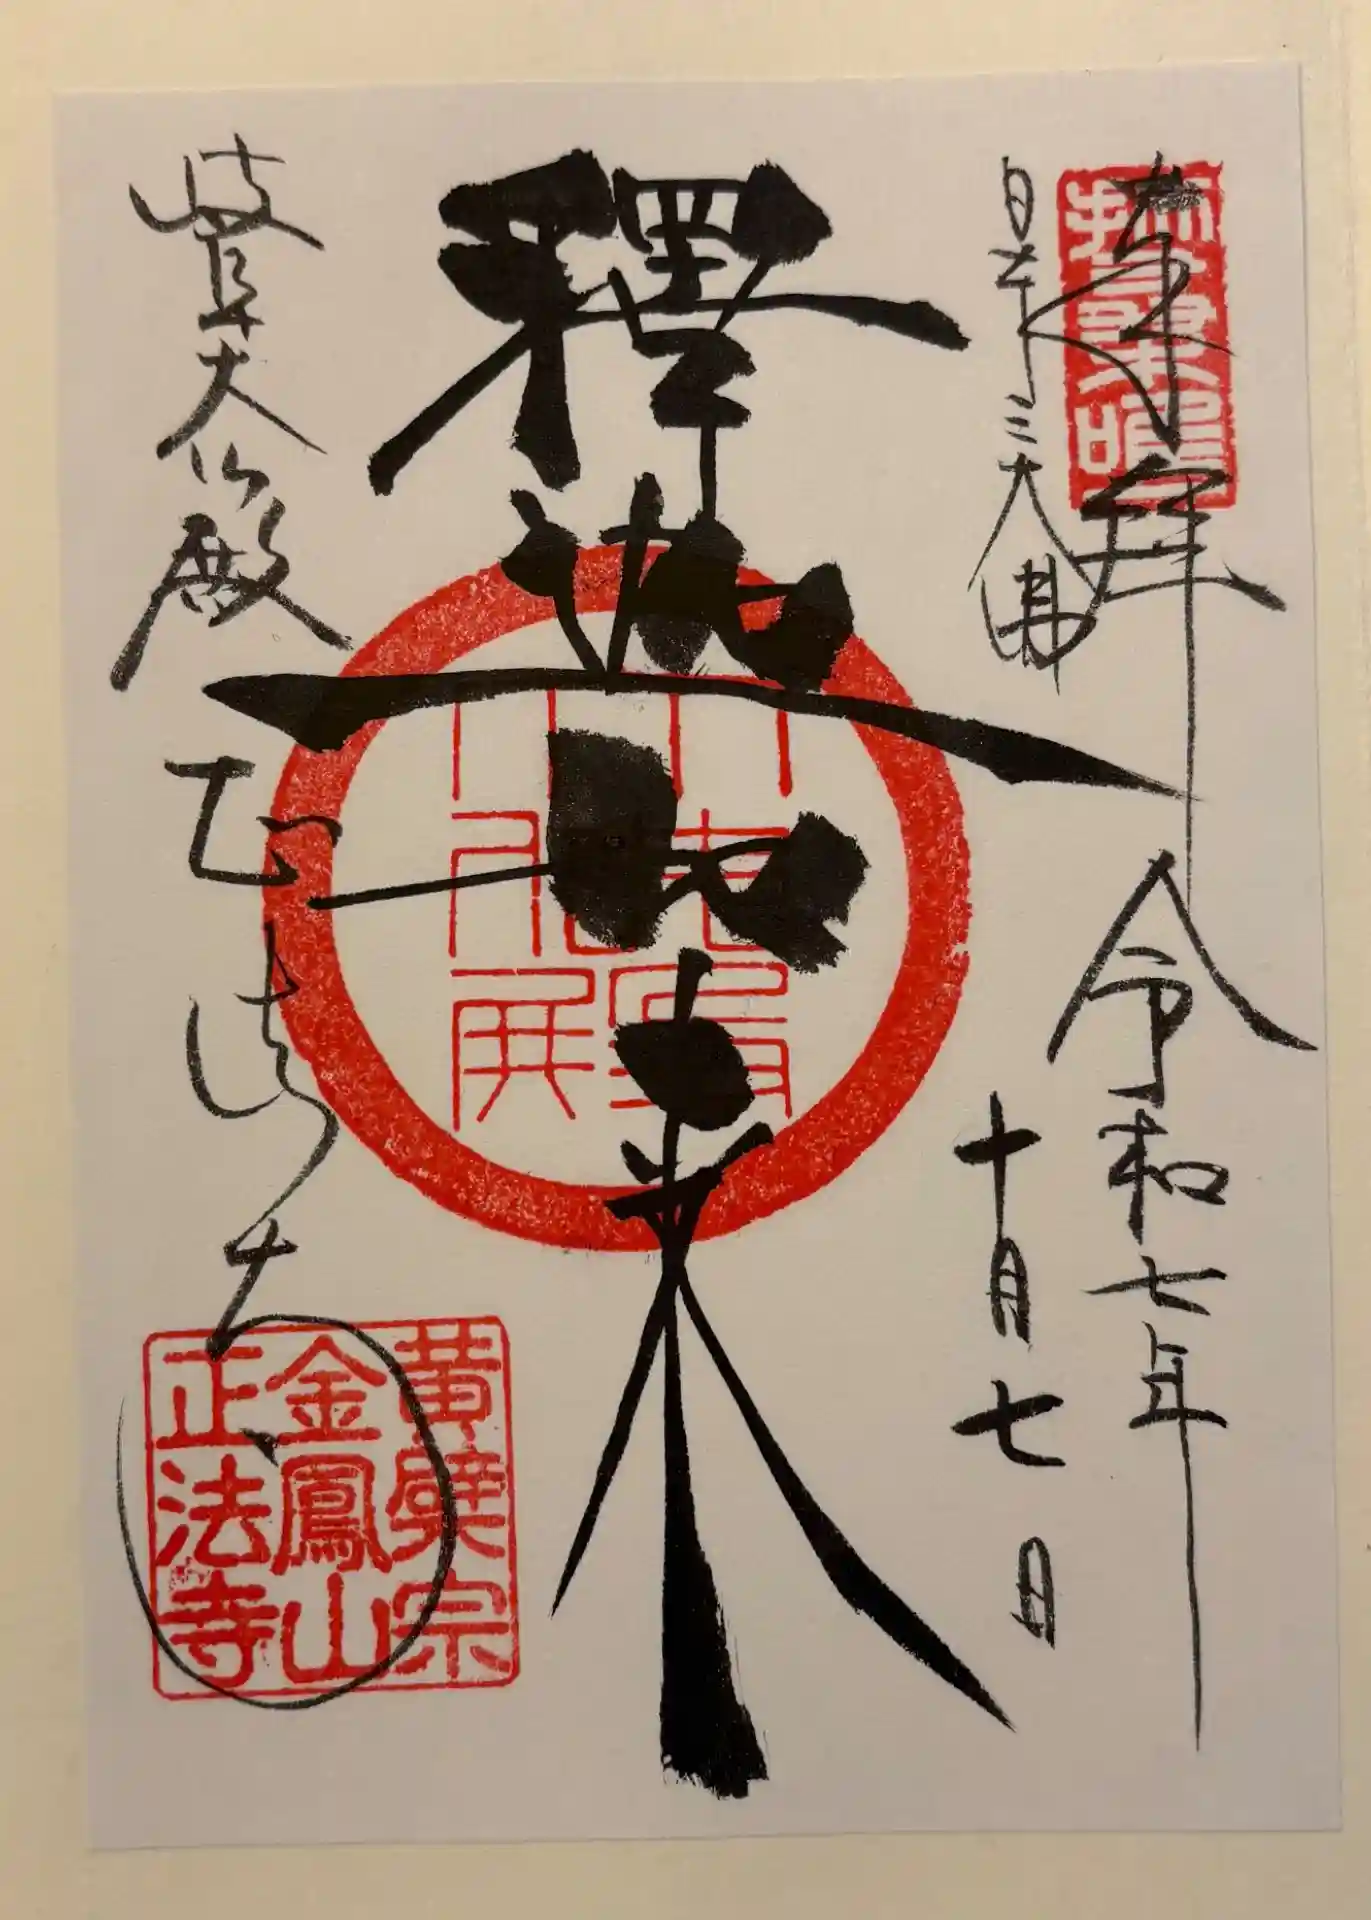 奉拝
令和七年
日本三大佛
十月七日
釋迦如来
岐阜大仏殿
正法寺
黄檗宗
金鳳山
正法寺